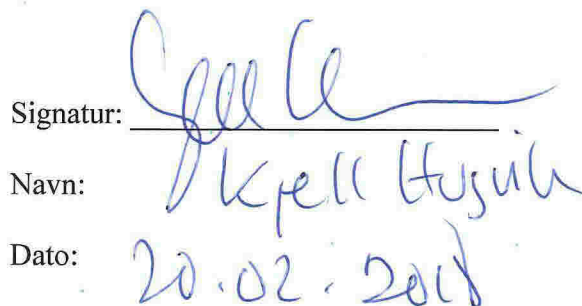 Signatur:
Navn: Kjell Husvik
Dato: 20.02.2018